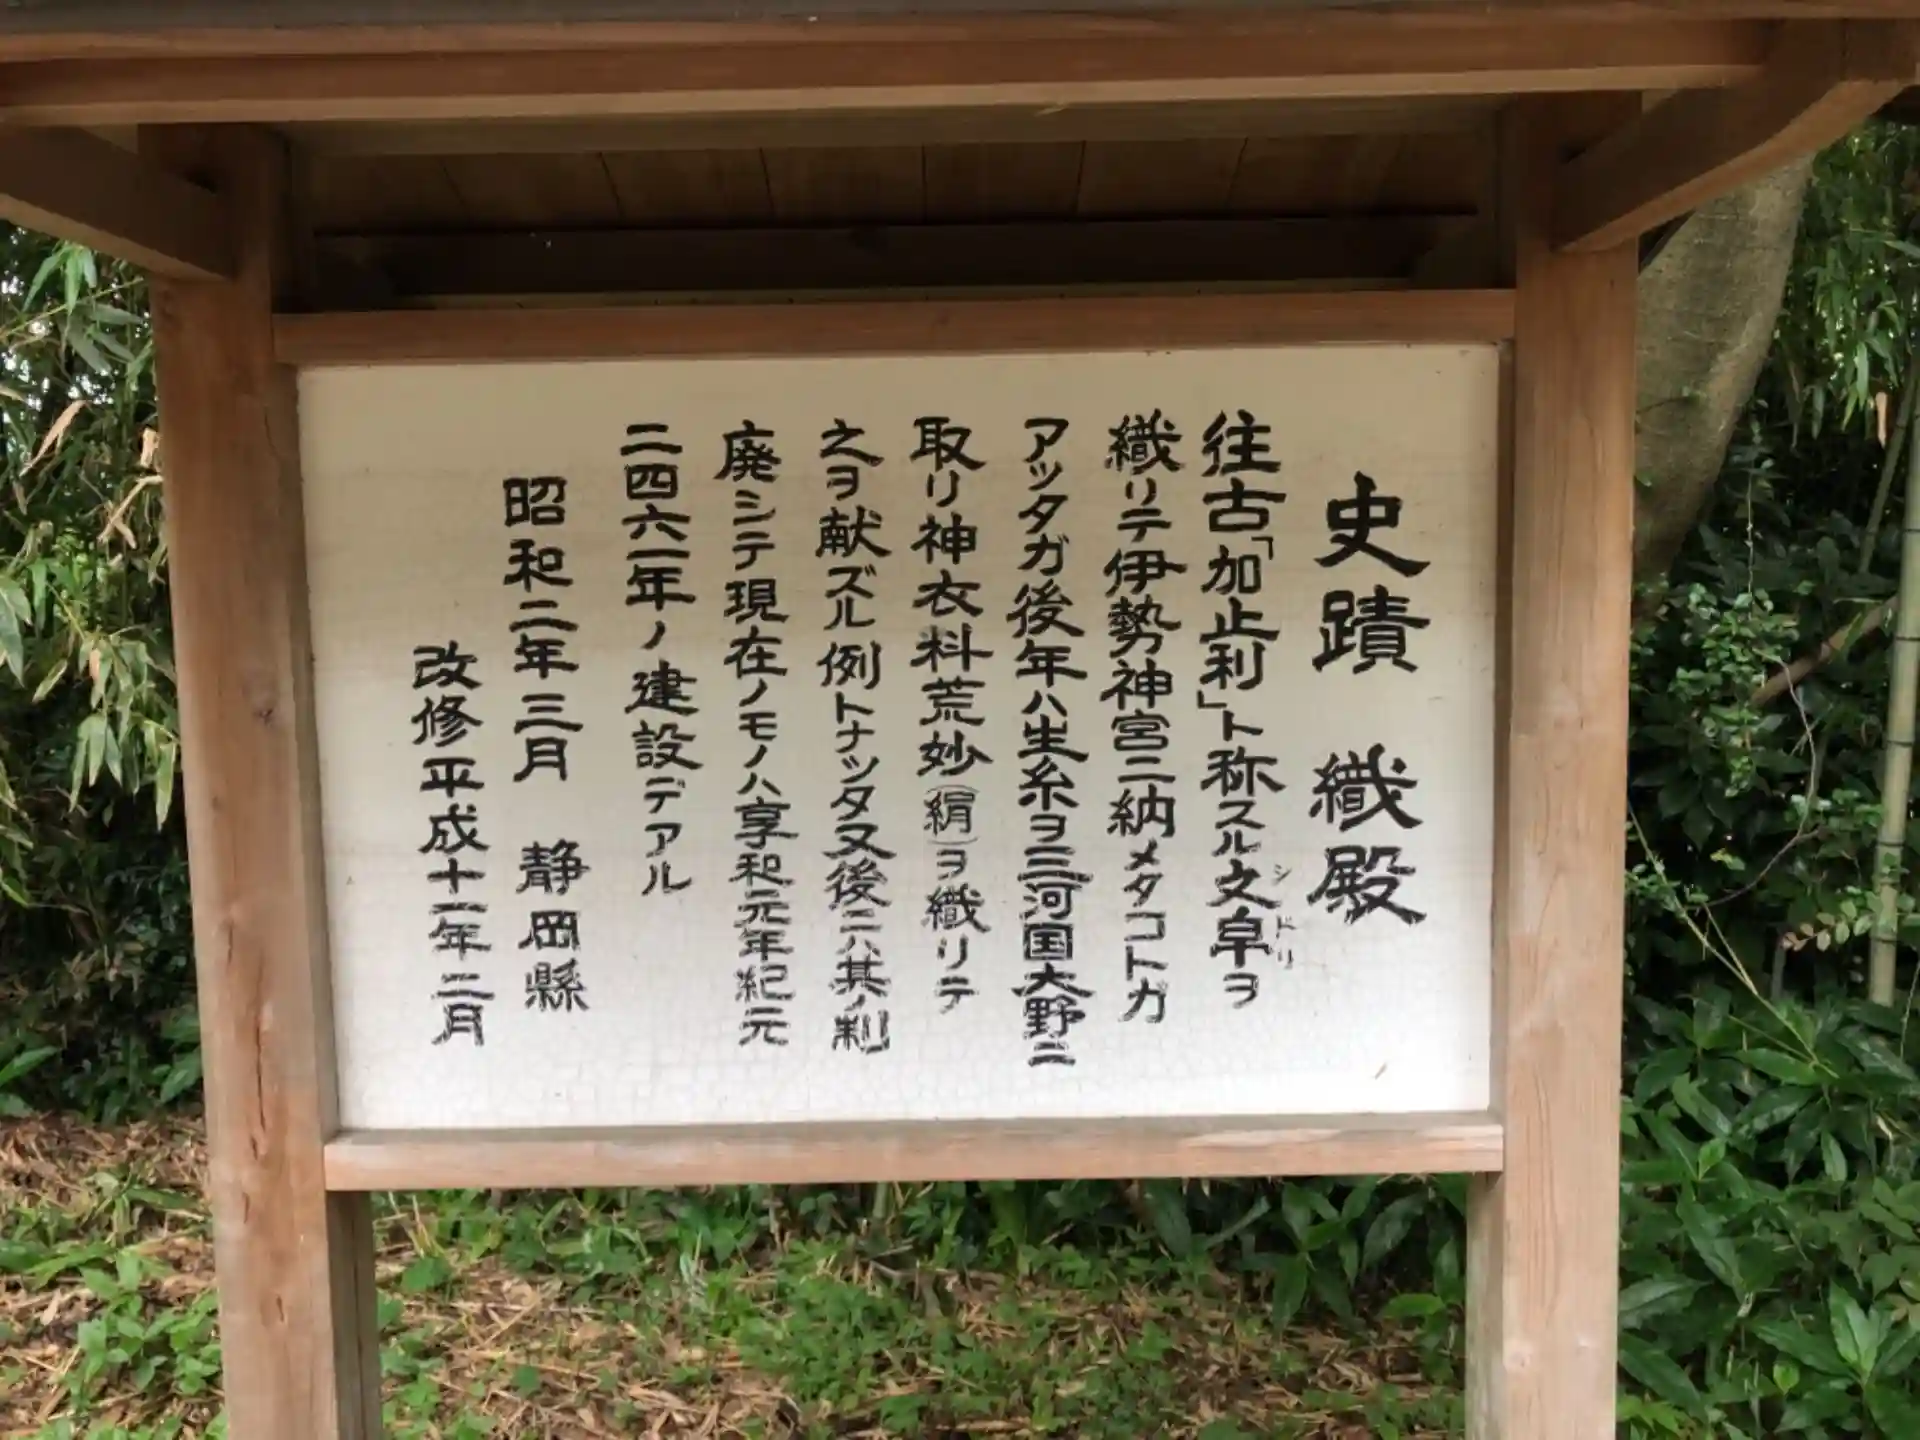 史蹟　織殿
往古「加止利」ト称スル文阜ヲ
シドリ
織リテ伊勢神宮ニ納メタコトガ
アッタガ後年ハ生糸ヲ三河国大野ニ
取リ神衣料荒妙(絹)ヲ織リテ
之ヲ献ズル例トナッタ又後ニハ其ノ制
廃シテ現在ノモノハ享和元年紀元
二四六一年ノ建設デアル
昭和二年三月　静岡縣
改修平成十一年二月